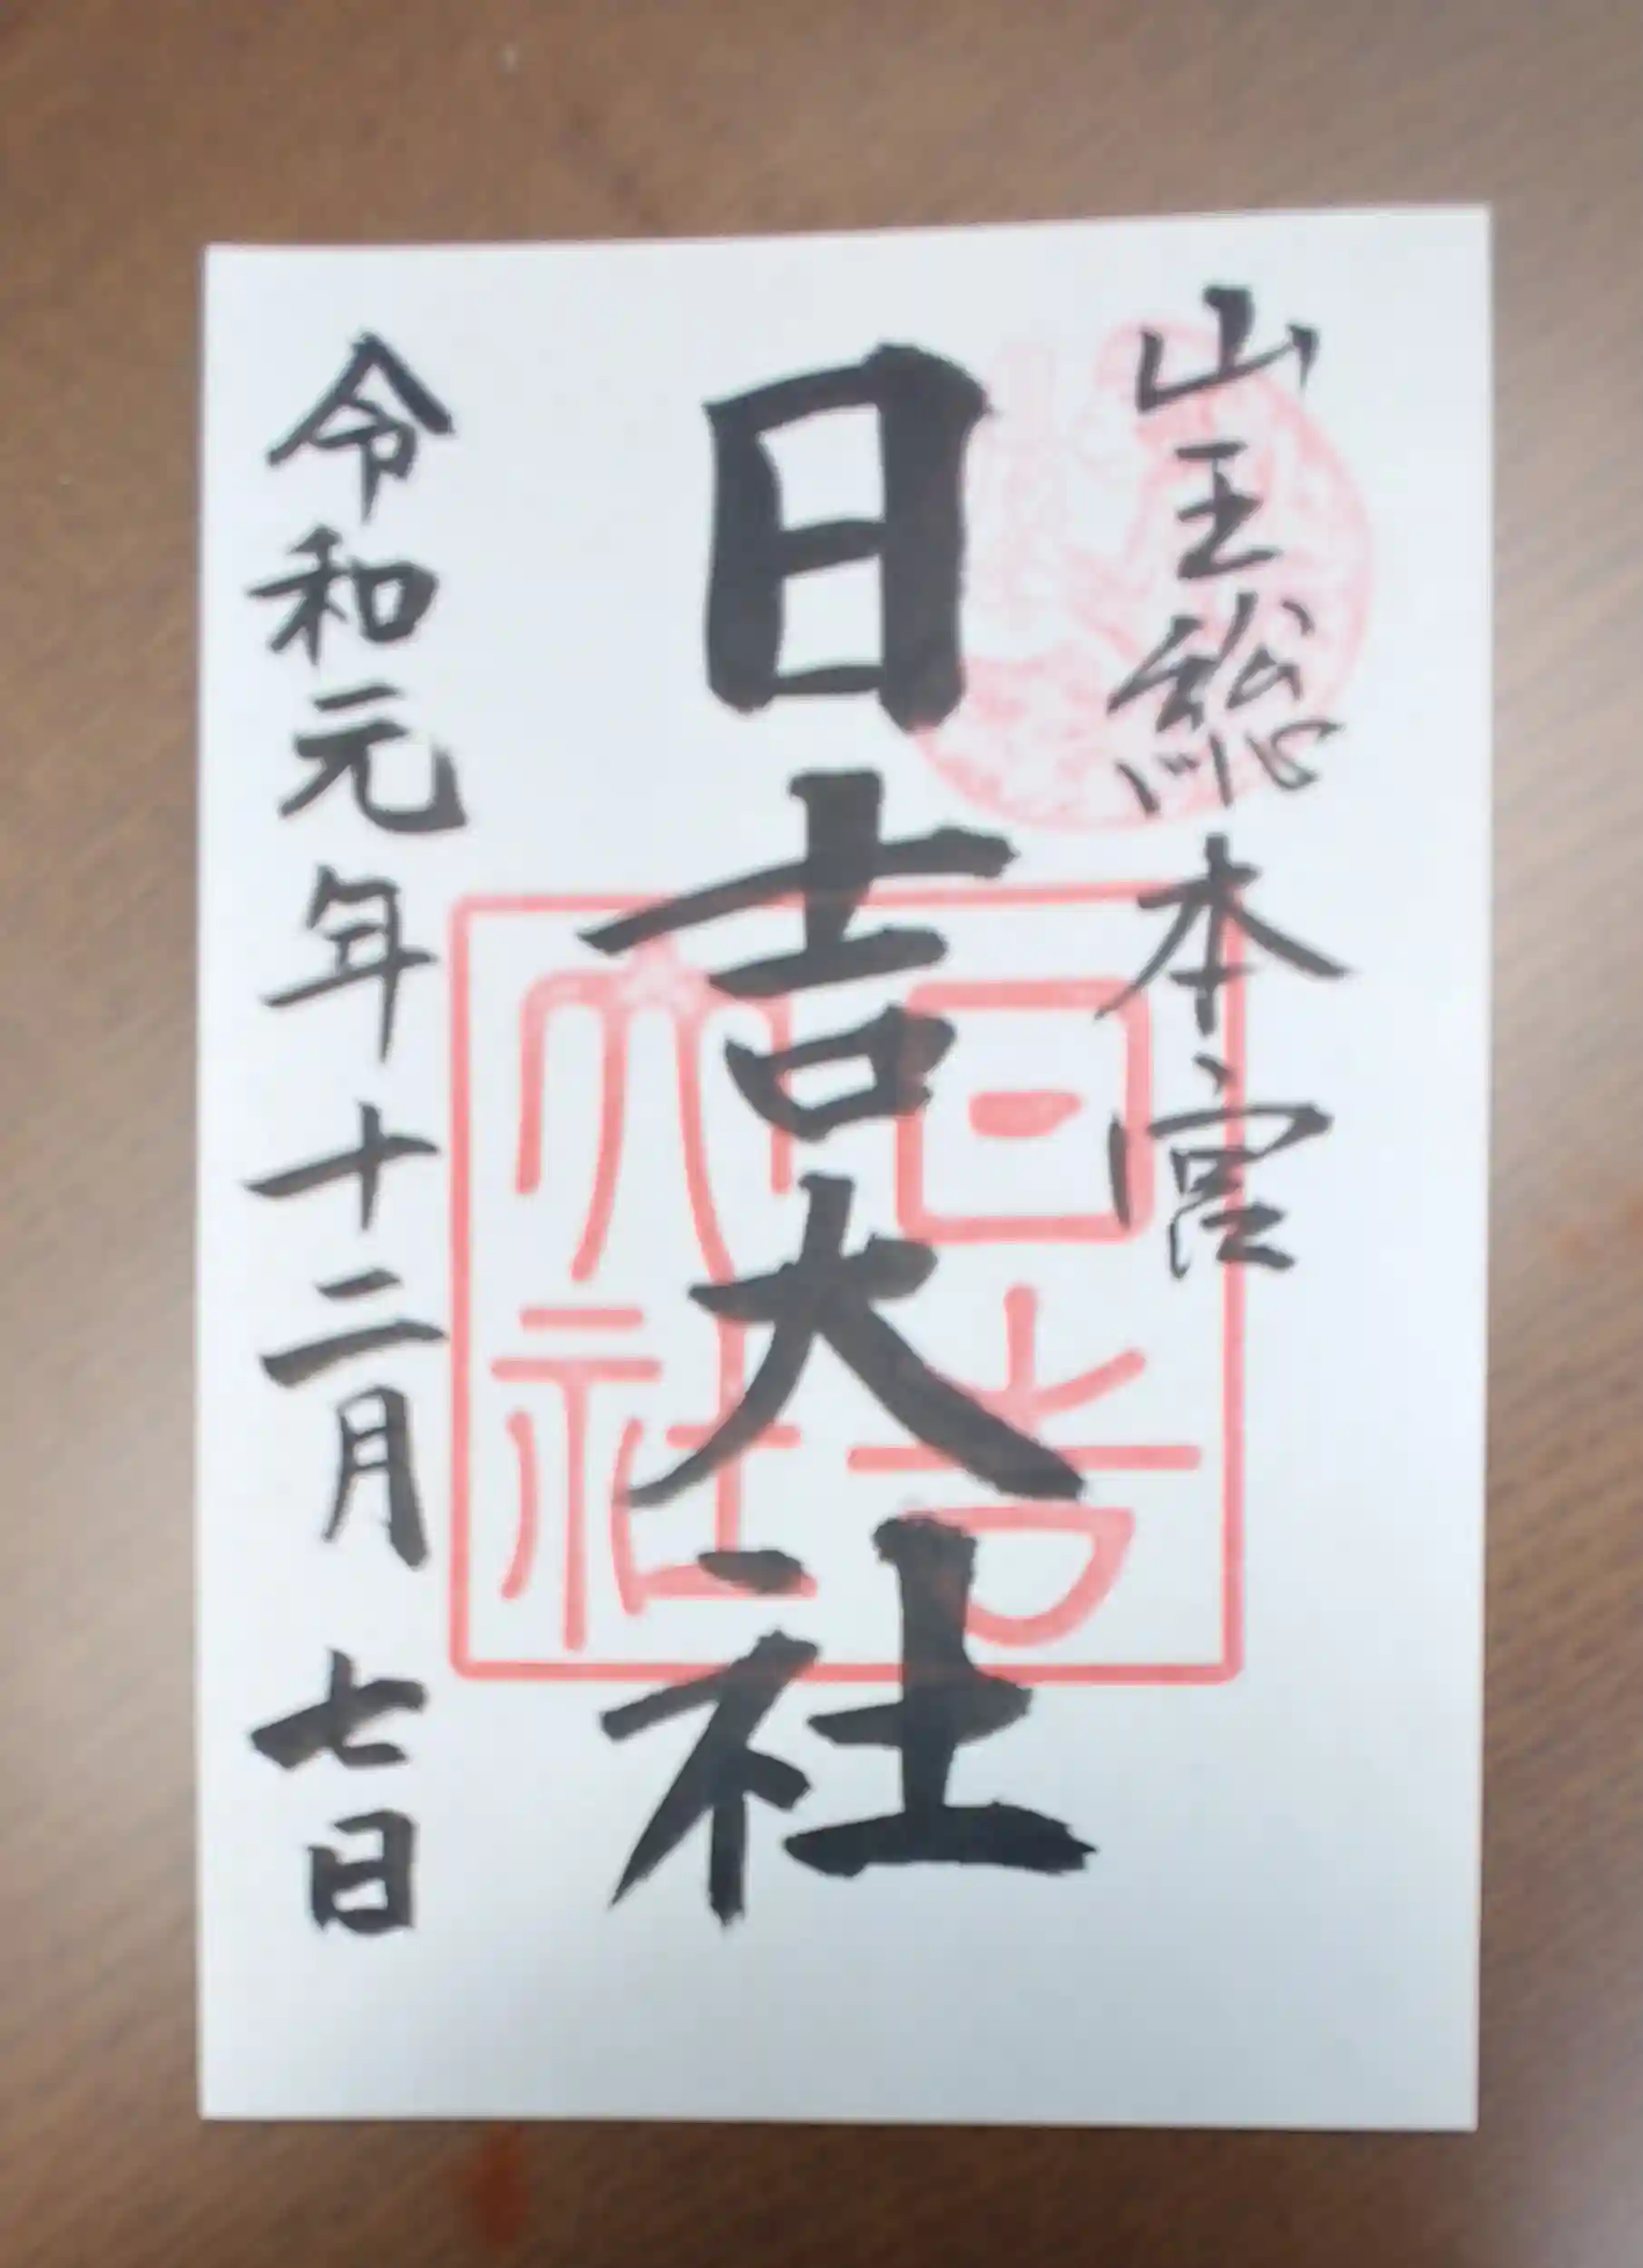 山王総本宮
日吉大社
令和元年十二月七日
日吉
大社